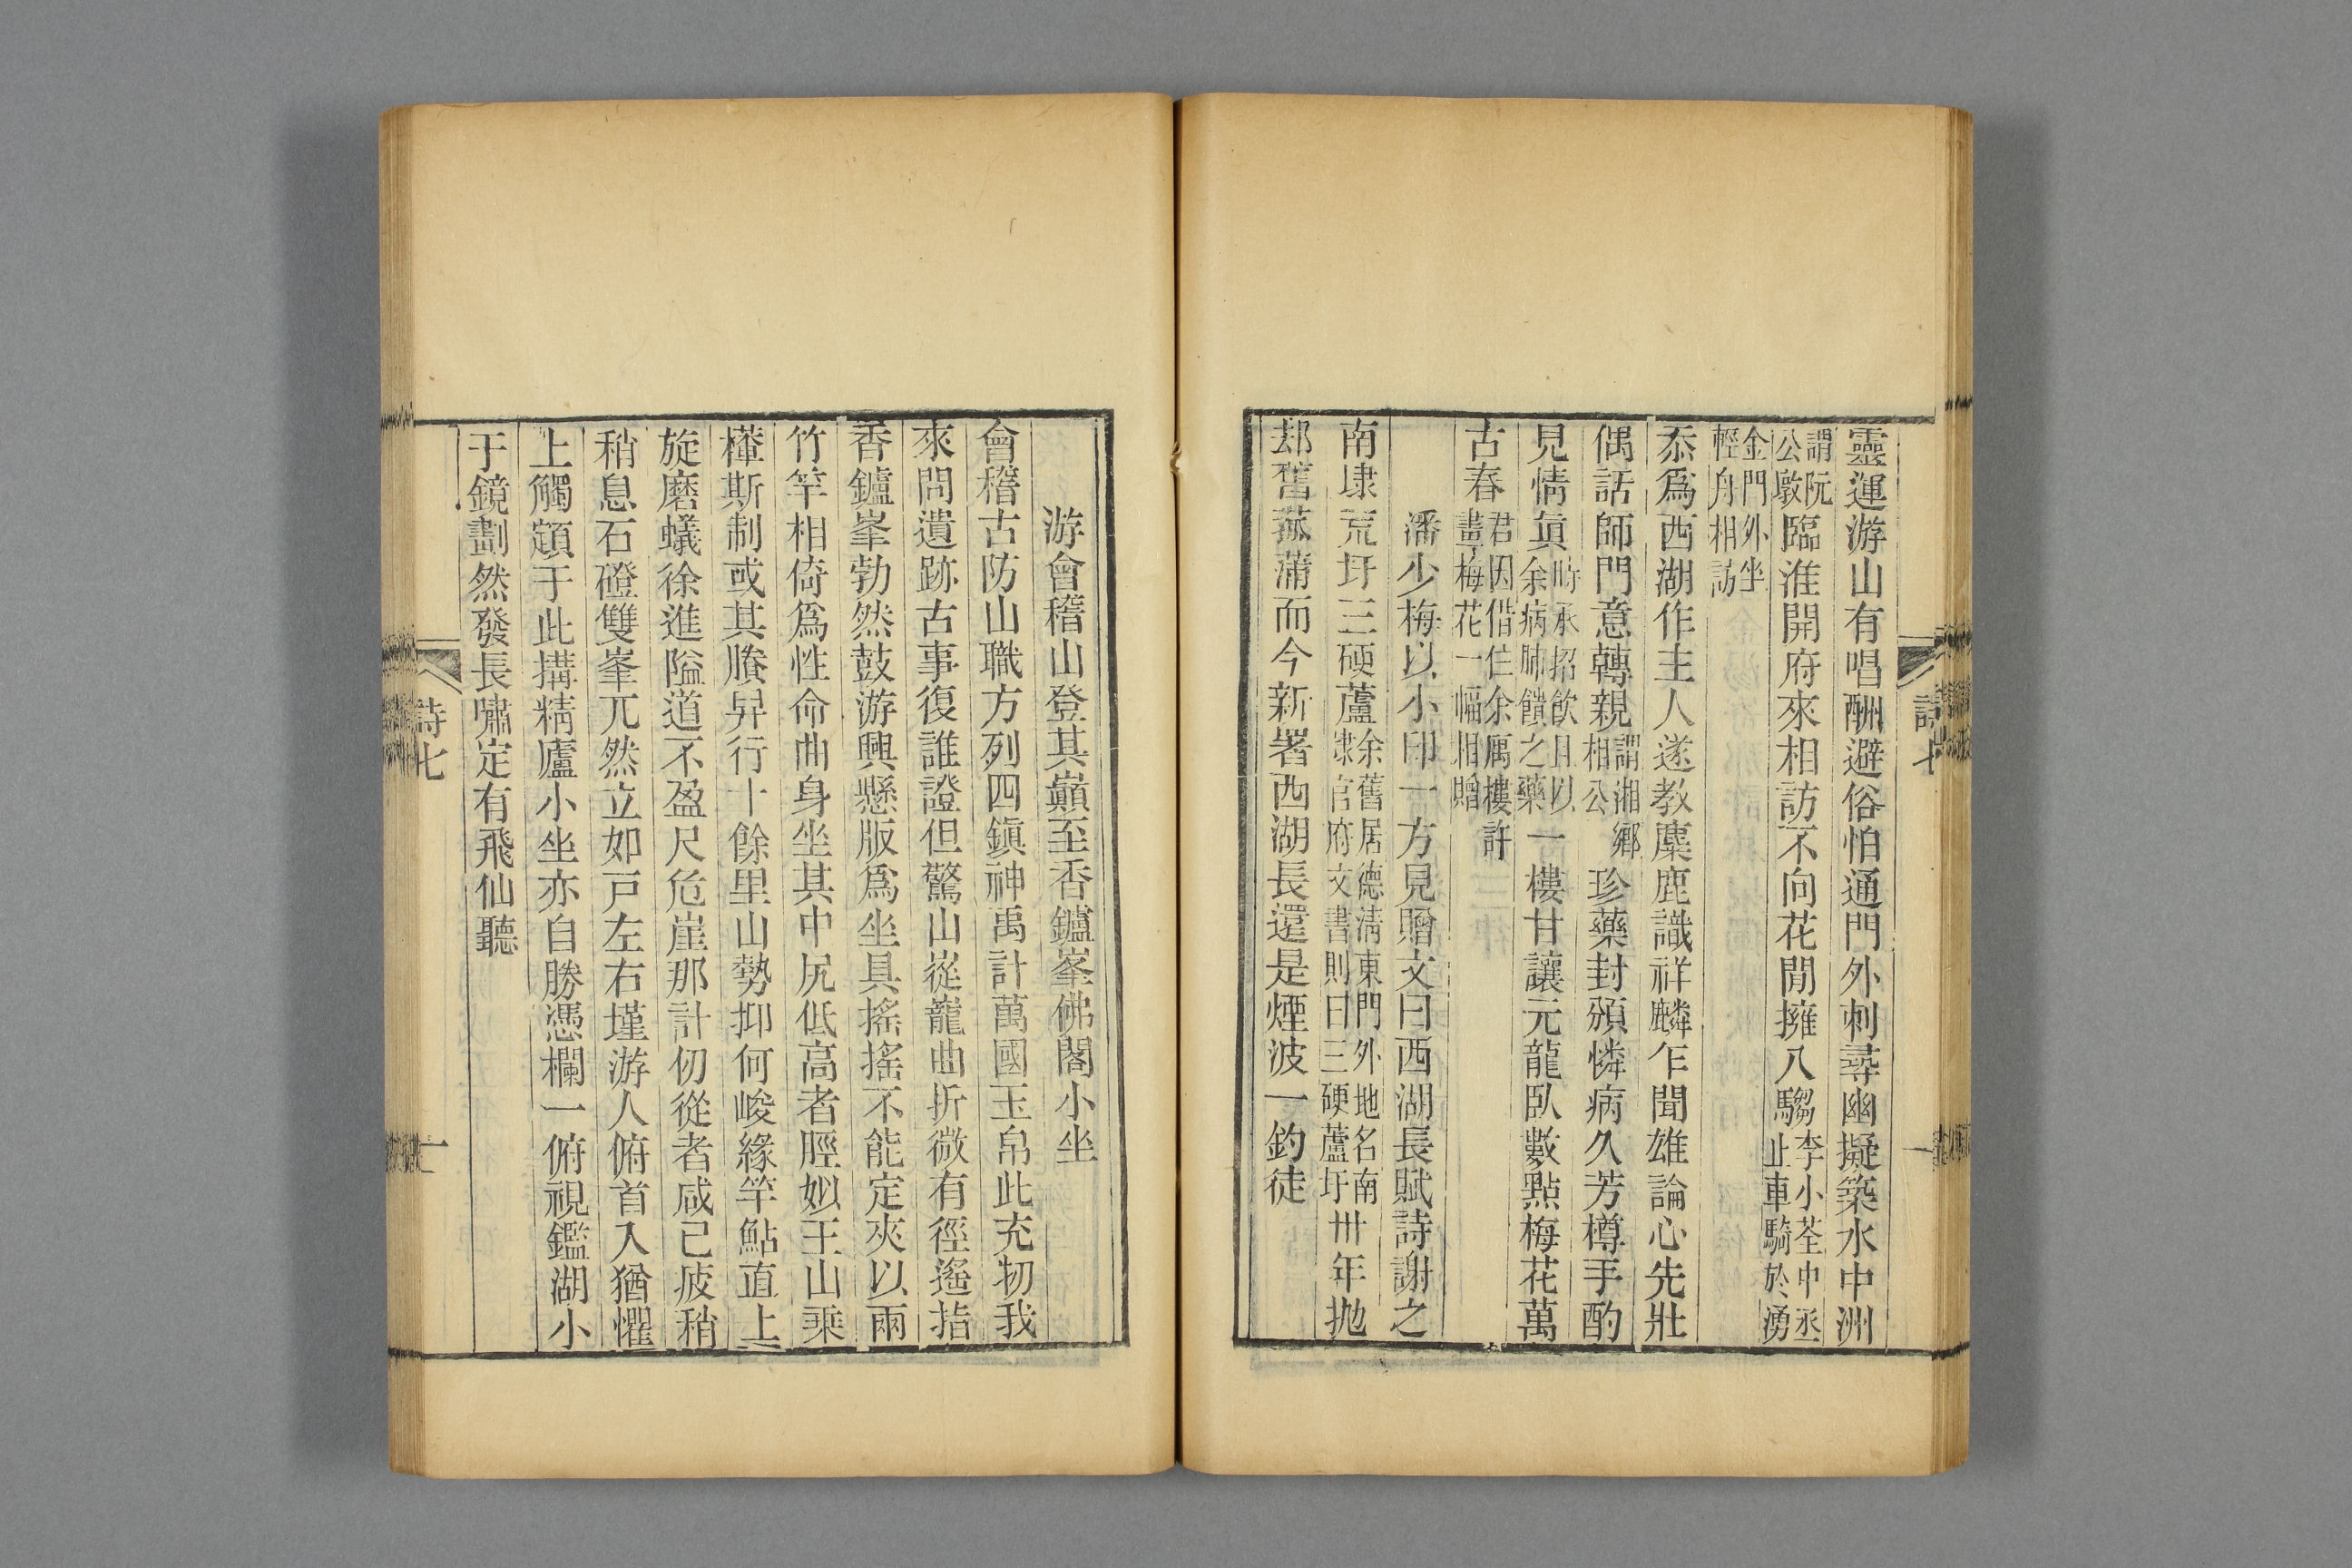 靈運游山有唱酬避俗怕通門外刺尋幽擬築水中洲
謂阮公墩臨淮開府來相訪不向花閒擁八騶李小荃中丞止車騎於湧
金門外坐輕舟相訪
忝爲西湖作主人遂教麋鹿識祥麟乍聞雄論心先壯
偶話師門意轉親謂湘鄉相公珍藥封頒憐病久芳樽手酌
見情眞時承招飲且以余病肺饋之藥一樓甘讓元龍臥數點梅花萬
古春君因偕住余厲樓許畫梅花一幅相贈
潘少梅以小印一方見贈文曰西湖長賦詩謝之
南埭荒圩三硬蘆余舊居德淸東門外地名南埭官府文書則曰三硬蘆圩卅年抛
却舊菰蒲而今新署西湖長還是煙波一釣徒
詩七
游會稽山登其巔至香鑪峯佛閣小坐
會稽古防山職方列四鎭神禹計萬國玉帛此充牣我
來問遺跡古事復誰證但驚山巃嵸曲折微有徑遙指
香鑪峯勃然鼓游興懸版爲坐具搖搖不能定夾以兩
竹竿相倚爲性命曲身坐其中尻低高者脛姒王山乘
樏斯制或其賸舁行十餘里山勢抑何峻緣竿鮎直上
旋磨蟻徐進隘道不盈尺危崖那計仞從者咸已疲稍
稍息石磴雙峯兀然立如戸左右墐游人俯首入猶懼
上觸顗于此搆精廬小坐亦自勝憑欄一俯視鑑湖小
于鏡劃然發長嘯定有飛仙聽
詩七
一